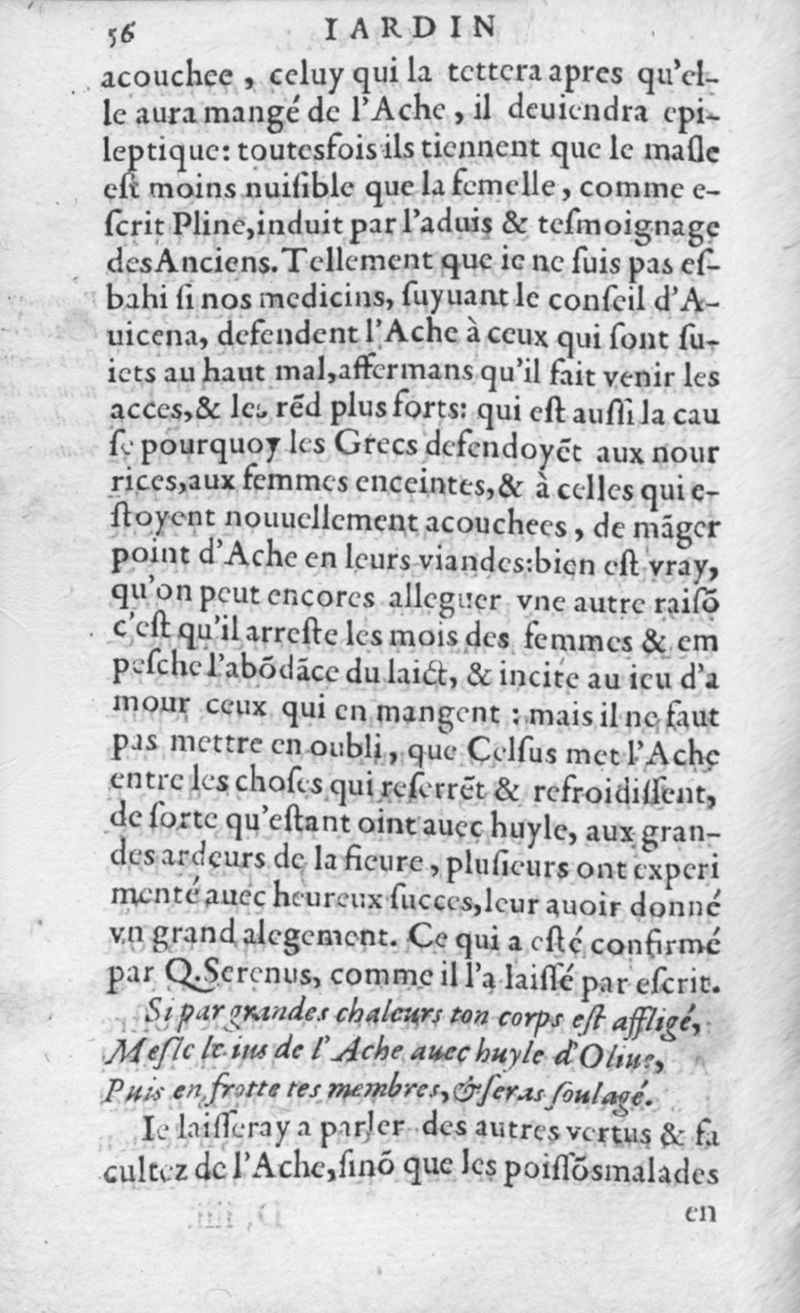 56 IARDIN
acouchee, celuy qui la tettera apres qu'el-
le aura mangé de l'Ache, il deuiendra epi-
leptique: toutesfois ils tiennent que le maſle
eſt moins nuiſible que la femelle, comme e-
ſcrit Pline, induit par l'aduis & teſmoignage
des Anciens. Tellement que ie ne ſuis pas eſ-
bahi ſi nos medicins, ſuyuant le conſeil d'A-
uicena, defendent l'Ache à ceux qui ſont ſu-
iets au haut mal, affermans qu'il fait venir les
acces, & les rẽd plus forts: qui eſt auſſi la cau
ſe pourquoy les Grecs defendoyẽt aux nour
rices, aux femmes enceintes, & à celles qui e-
ſtoyent nouuellement acouchees, de mãger
point d'Ache en leurs viandes: bien eſt vray,
qu'on peut encores alleguer vne autre raiſõ
c'eſt qu'il arreſte les mois des femmes & em
peſche l'abõdãce du laict, & incite au ieu d'a
mour ceux qui en mangent: mais il ne faut
pas mettre en oubli, que Celſus met l'Ache
entre les choſes qui reſerrẽt & refroidiſſent,
de ſorte qu'eſtant oint auec huyle, aux gran-
des ardeurs de la fieure, pluſieurs ont experi
menté auec heureux ſucces, leur auoir donné
vn grand alegement. Ce qui a eſté confirmé
par Q. Serenus, comme il l'a laiſſé par eſcrit.
Si par grandes chaleurs ton corps eſt affligé,
Meſle le ius de l'Ache auec huyle d'Oliue,
Puis en frotte tes membres, & ſeras ſoulagé.
Ie laiſſeray a parler des autres vertus & fa
cultez de l'Ache, ſinõ que les poiſſõs malades
en